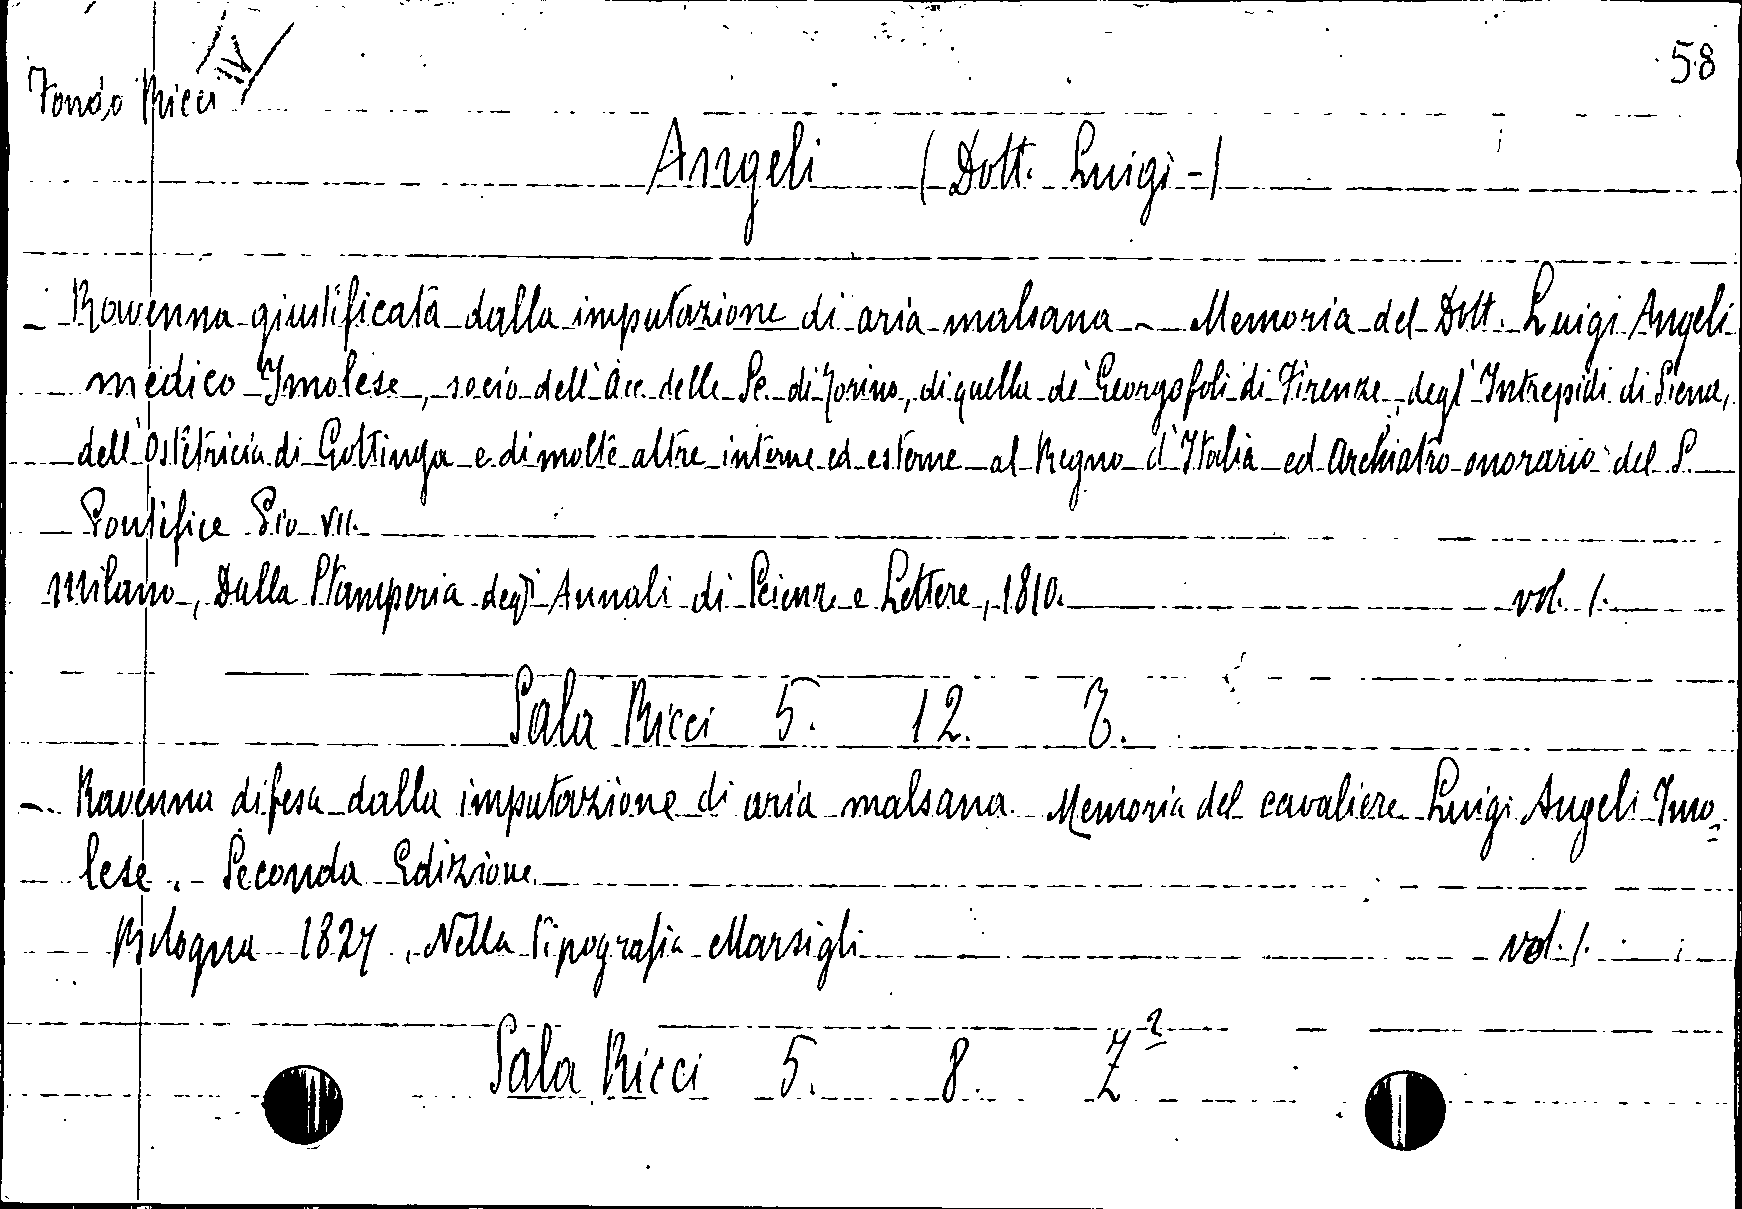 Fondo Ricci IV
58
Angeli (Dott. Luigi -)
- Ravenna giustificata dalla imputazione di aria malsana - Memoria del Dott. Luigi Angeli
medico Imolese, socio dell'Acc. delle Sc. di Torino, di quella de' Georgofoli di Firenze, degl'Intrepidi di Siena,
dell'Ostetricia di Gottinga e di molte altre interne ed esterne al Regno d'Italia ed Archiatro onorario del S.
Pontifice Pio VII.
Milano, Dalla Stamperia degl'Annali di Scienz. e Lettere, 1810. vol. 1.
Sala Ricci 5. 12. Z.
- Ravenna difesa dalla imputazione di aria malsana. Memoria del cavaliere Luigi Angeli Imo=
lese. - Seconda Edizione.
Bologna 1827, Nella Tipografia Marsigli vol. 1.
Sala Ricci 5. 8. Z²